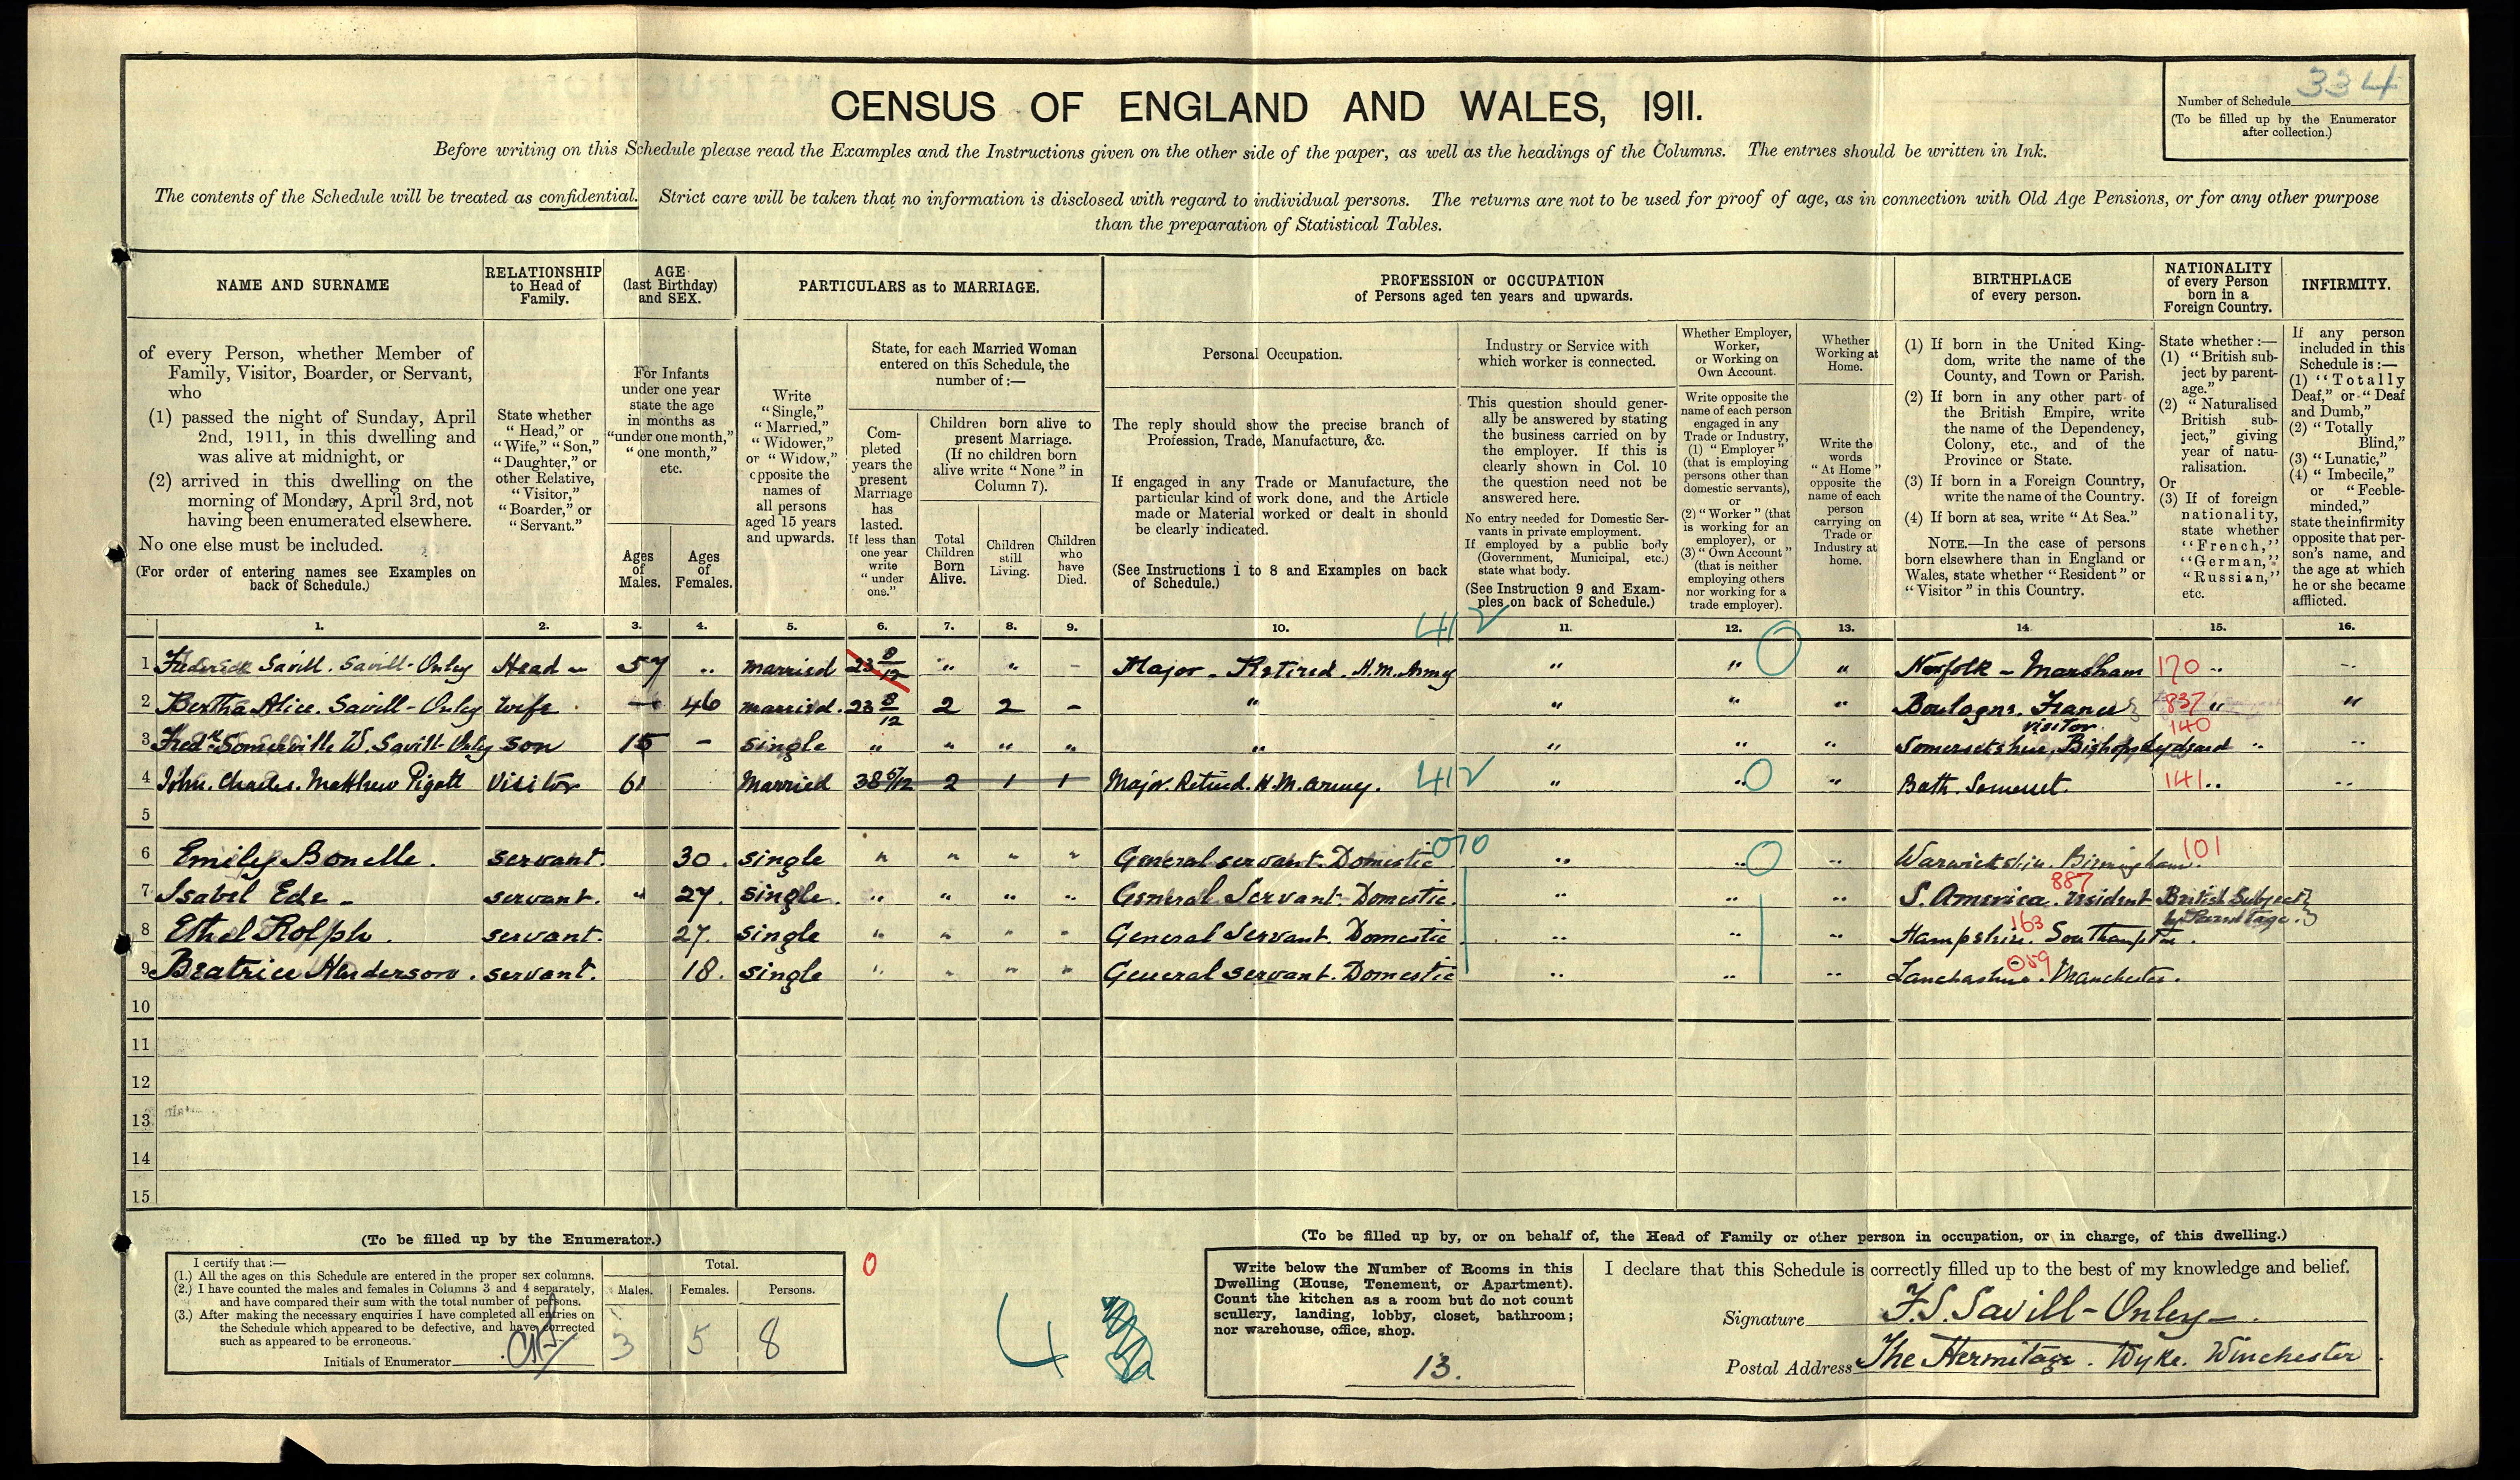 334
Number of Schedule
(To be filled up by the Enumerator
after collection.)
CENSUS OF ENGLAND AND WALES, 1911.
Before writing on this Schedule please read the Examples and the Instructions given on the other side of the paper, as well as the headings of the Columns. The entries should be written in Ink.
The contents of the Schedule will be treated as confidential. Strict care will be taken that no information is disclosed with regard to individual persons. The returns are not to be used for proof of age, as in connection with Old Age Pensions, or for any other purpose
than the preparation of Statistical Tables.
NAME AND SURNAME
of every Person, whether Member of
Family, Visitor, Boarder, or Servant,
who
(1) passed the night of Sunday, April
2nd, 1911, in this dwelling and
was alive at midnight, or
(2) arrived in this dwelling on the
morning of Monday, April 3rd, not
having been enumerated elsewhere.
No one else must be included.
(For order of entering names see Examples on
back of Schedule.)
RELATIONSHIP
to Head of
Family.
State whether
"Head," or
"Wife," "Son,"
"Daughter," or
other Relative,
"Visitor,"
"Boarder," or
"Servant."
AGE
(last Birthday)
and SEX.
For Infants
under one year
state the age
in months as
"under one month,"
"one month,"
etc.
Ages
of
Males.
Ages
of
Females.
PARTICULARS as to MARRIAGE.
Write
"Single,"
"Married,"
"Widower,"
or "Widow,"
opposite the
names of
all persons
aged 15 years
and upwards.
State, for each Married Woman
entered on this Schedule, the
number of:—
Com-
pleted
years the
present
Marriage
has
lasted.
If less than
one year
write
"under
one."
Children born alive to
present Marriage.
(If no children born
alive write "None" in
Column 7).
Total
Children
Born
Alive.
Children
still
Living.
Children
who
have
Died.
PROFESSION or OCCUPATION
of Persons aged ten years and upwards.
Personal Occupation.
The reply should show the precise branch of
Profession, Trade, Manufacture, &c.
If engaged in any Trade or Manufacture, the
particular kind of work done, and the Article
made or Material worked or dealt in should
be clearly indicated.
(See Instructions 1 to 8 and Examples on back
of Schedule.)
Industry or Service with
which worker is connected.
This question should gener-
ally be answered by stating
the business carried on by
the employer. If this is
clearly shown in Col. 10
the question need not be
answered here.
No entry needed for Domestic Ser-
vants in private employment.
If employed by a public body
(Government, Municipal, etc.)
state what body.
(See Instruction 9 and Exam-
ples on back of Schedule.)
Whether Employer,
Worker,
or Working on
Own Account.
Write opposite the
name of each person
engaged in any
Trade or Industry,
(1) "Employer"
(that is employing
persons other than
domestic servants),
or
(2) "Worker" (that
is working for an
employer), or
(3) "Own Account"
(that is neither
employing others
nor working for a
trade employer).
Whether
Working at
Home.
Write the
words
"At Home"
opposite the
name of each
person
carrying on
Trade or
Industry at
home.
BIRTHPLACE
of every person.
(1) If born in the United King-
dom, write the name of the
County, and Town or Parish.
(2) If born in any other part of
the British Empire, write
the name of the Dependency,
Colony, etc., and of the
Province or State.
(3) If born in a Foreign Country,
write the name of the Country.
(4) If born at sea, write "At Sea."
NOTE.—In the case of persons
born elsewhere than in England or
Wales, state whether "Resident" or
"Visitor" in this Country.
NATIONALITY
of every Person
born in a
Foreign Country.
State whether:—
(1) "British sub-
ject by parent-
age."
(2) "Naturalised
British sub-
ject," giving
year of natu-
ralisation.
Or
(3) If of foreign
nationality,
state whether
"French,"
"German,"
"Russian,"
etc.
INFIRMITY.
If any person
included in this
Schedule is:—
(1) "Totally
Deaf," or "Deaf
and Dumb,"
(2) "Totally
Blind,"
(3) "Lunatic,"
(4) "Imbecile,"
or "Feeble-
minded,"
state the infirmity
opposite that per-
son's name, and
the age at which
he or she became
afflicted.
1. 2. 3. 4. 5. 6. 7. 8. 9. 10. 11. 12. 13. 14. 15. 16.
1 Frederick Savill. Savill-Onley Head 57 " married 23 8/12 " " - Major - Retired. H.M. Army 412 " " 0 " Norfolk - Marsham 170 "
2 Bertha Alice. Savill-Onley Wife - 46 married. 23 8/12 2 2 - " " " " Boulogne. France } visitor 837 " "
3 Fredk Somerville W. Savill-Onley son 15 - single " " " " " " " " Somersetshire. Bishops Lydeard 140 "
4 John. Charles. Matthew Pigott Visitor 61 Married 38 5/12 2 1 1 Major. Retired. H.M. Army. 412 " 0 " Bath. Somerset. 141 "
5
6 Emily Bonelle. servant. 30. single " " " " General servant. Domestic 070 " 0 " Warwickshire. Birmingham. 101
7 Isabel Ede - servant. " 27. single. " " " " General Servant. Domestic. " " " S. America. resident 887 British Subject }
by Parentage. }
8 Ethel Rolph. servant. 27. single " " " " General Servant. Domestic " " " Hampshire. Southampton. 163
9 Beatrice Henderson. servant. 18. single " " " " General servant. Domestic " " " Lanchashire. Manchester. 059
10
11
12
13
14
15
(To be filled up by the Enumerator.)
I certify that:—
(1.) All the ages on this Schedule are entered in the proper sex columns.
(2.) I have counted the males and females in Columns 3 and 4 separately,
and have compared their sum with the total number of persons.
(3.) After making the necessary enquiries I have completed all entries on
the Schedule which appeared to be defective, and have corrected
such as appeared to be erroneous.
Initials of Enumerator
Total.
Males. Females. Persons.
3 5 8
0
4
(To be filled up by, or on behalf of, the Head of Family or other person in occupation, or in charge, of this dwelling.)
Write below the Number of Rooms in this
Dwelling (House, Tenement, or Apartment).
Count the kitchen as a room but do not count
scullery, landing, lobby, closet, bathroom;
nor warehouse, office, shop.
13.
I declare that this Schedule is correctly filled up to the best of my knowledge and belief.
Signature F. S. Savill-Onley.
Postal Address The Hermitage. Wyke. Winchester